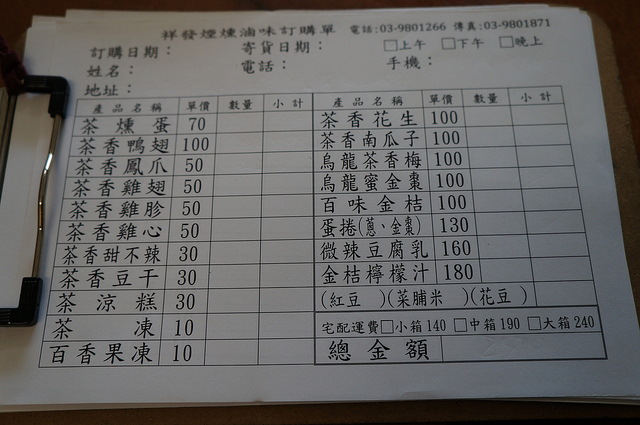 祥發煙燻滷味訂購單 電話:03-9801266 傳真:03-9801871
訂購日期： 寄貨日期： □上午 □下午 □晚上
姓名： 電話： 手機：
地址：
產品名稱 單價 數量 小計 產品名稱 單價 數量 小計
茶燻蛋 70 茶香花生 100
茶香鴨翅 100 茶香南瓜子 100
茶香鳳爪 50 烏龍茶香梅 100
茶香雞翅 50 烏龍蜜金棗 100
茶香雞胗 50 百味金桔 100
茶香雞心 50 蛋捲(蔥、金棗) 130
茶香甜不辣 30 微辣豆腐乳 160
茶香豆干 30 金桔檸檬汁 180
茶涼糕 30 (紅豆 )(菜脯米 )(花豆 )
茶凍 10 宅配運費□小箱140 □中箱190 □大箱240
百香果凍 10 總金額